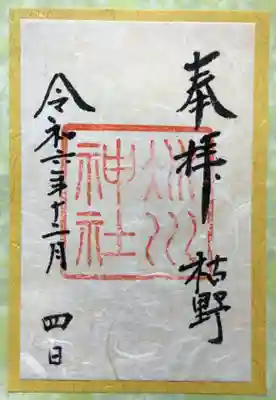 奉拝 枯野
氷川
神社
令和六年十二月 四日